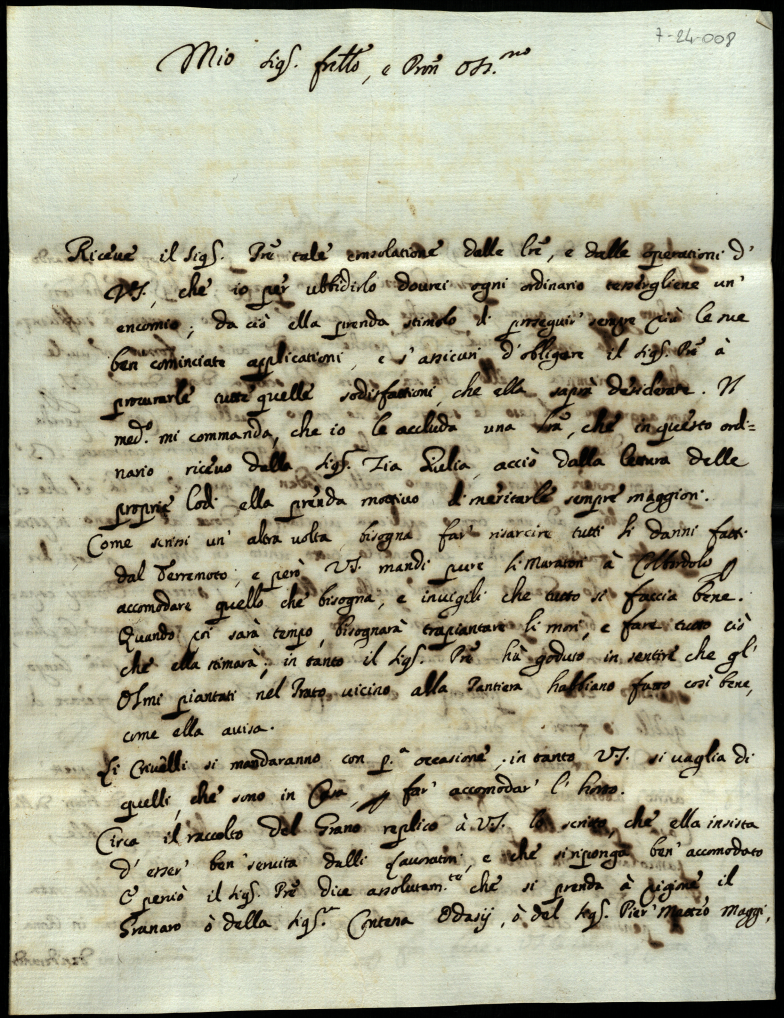 7-24-008
Mio Sigr. fretto, e Pron Oss.mo
Riceve il Sigr. Pre tale consolatione dalle lre, e dalle operationi d'
VS., che io per ubbidirlo dovrei ogni ordinario tesserghene un'
encomio; da ciò ella prenda stimolo di proseguir' sempre più le sue
ben cominciate applicationi, e s'assicuri d'obligare il Sigr. Pre à
procurarle tutte quelle sodisfattioni, che ella saprà desiderare. Il
med.o mi commanda, che io le accluda una lra, che in questo ordi=
nario ricevo dalla Sigr.a Zia Giulia, acciò dalla lettura delle
proprie lodi ella prenda mottivo di meritarle sempre maggiori.
Come scrissi un' altra volta, bisogna far' risarcire tutti li danni fatti
dal Terremoto; e però VS. mandi pure li Muratori à
accomodare quello che bisogna, e invigili che tutto si faccia bene.
Quando poi sarà tempo, bisognarà trapiantare li mori, e fare tutto ciò
che ella stimarà; in tanto il Sigr. Pre hà goduto in sentire che gl'
Olmi piantati nel Prato vicino alla Pantiera habbiano fatto così bene,
come ella avisa.
Li Crivelli si mandaranno con p.a occasione; in tanto VS. si vaglia di
quelli, che sono in Casa, per far' accomodar' l'horto.
Circa il raccolto del Grano replico à VS. lo scritto, che ella insista
d'esser' ben' servita dalli Lavoratori, e che si riponga ben' accomodato
e perciò il Sigr. Pre dice assolutam.te che si prenda à pigione il
Granaro ò della Sigr.a Contessa Odasij, ò del Sigr. Pier' Matteo Maggi,